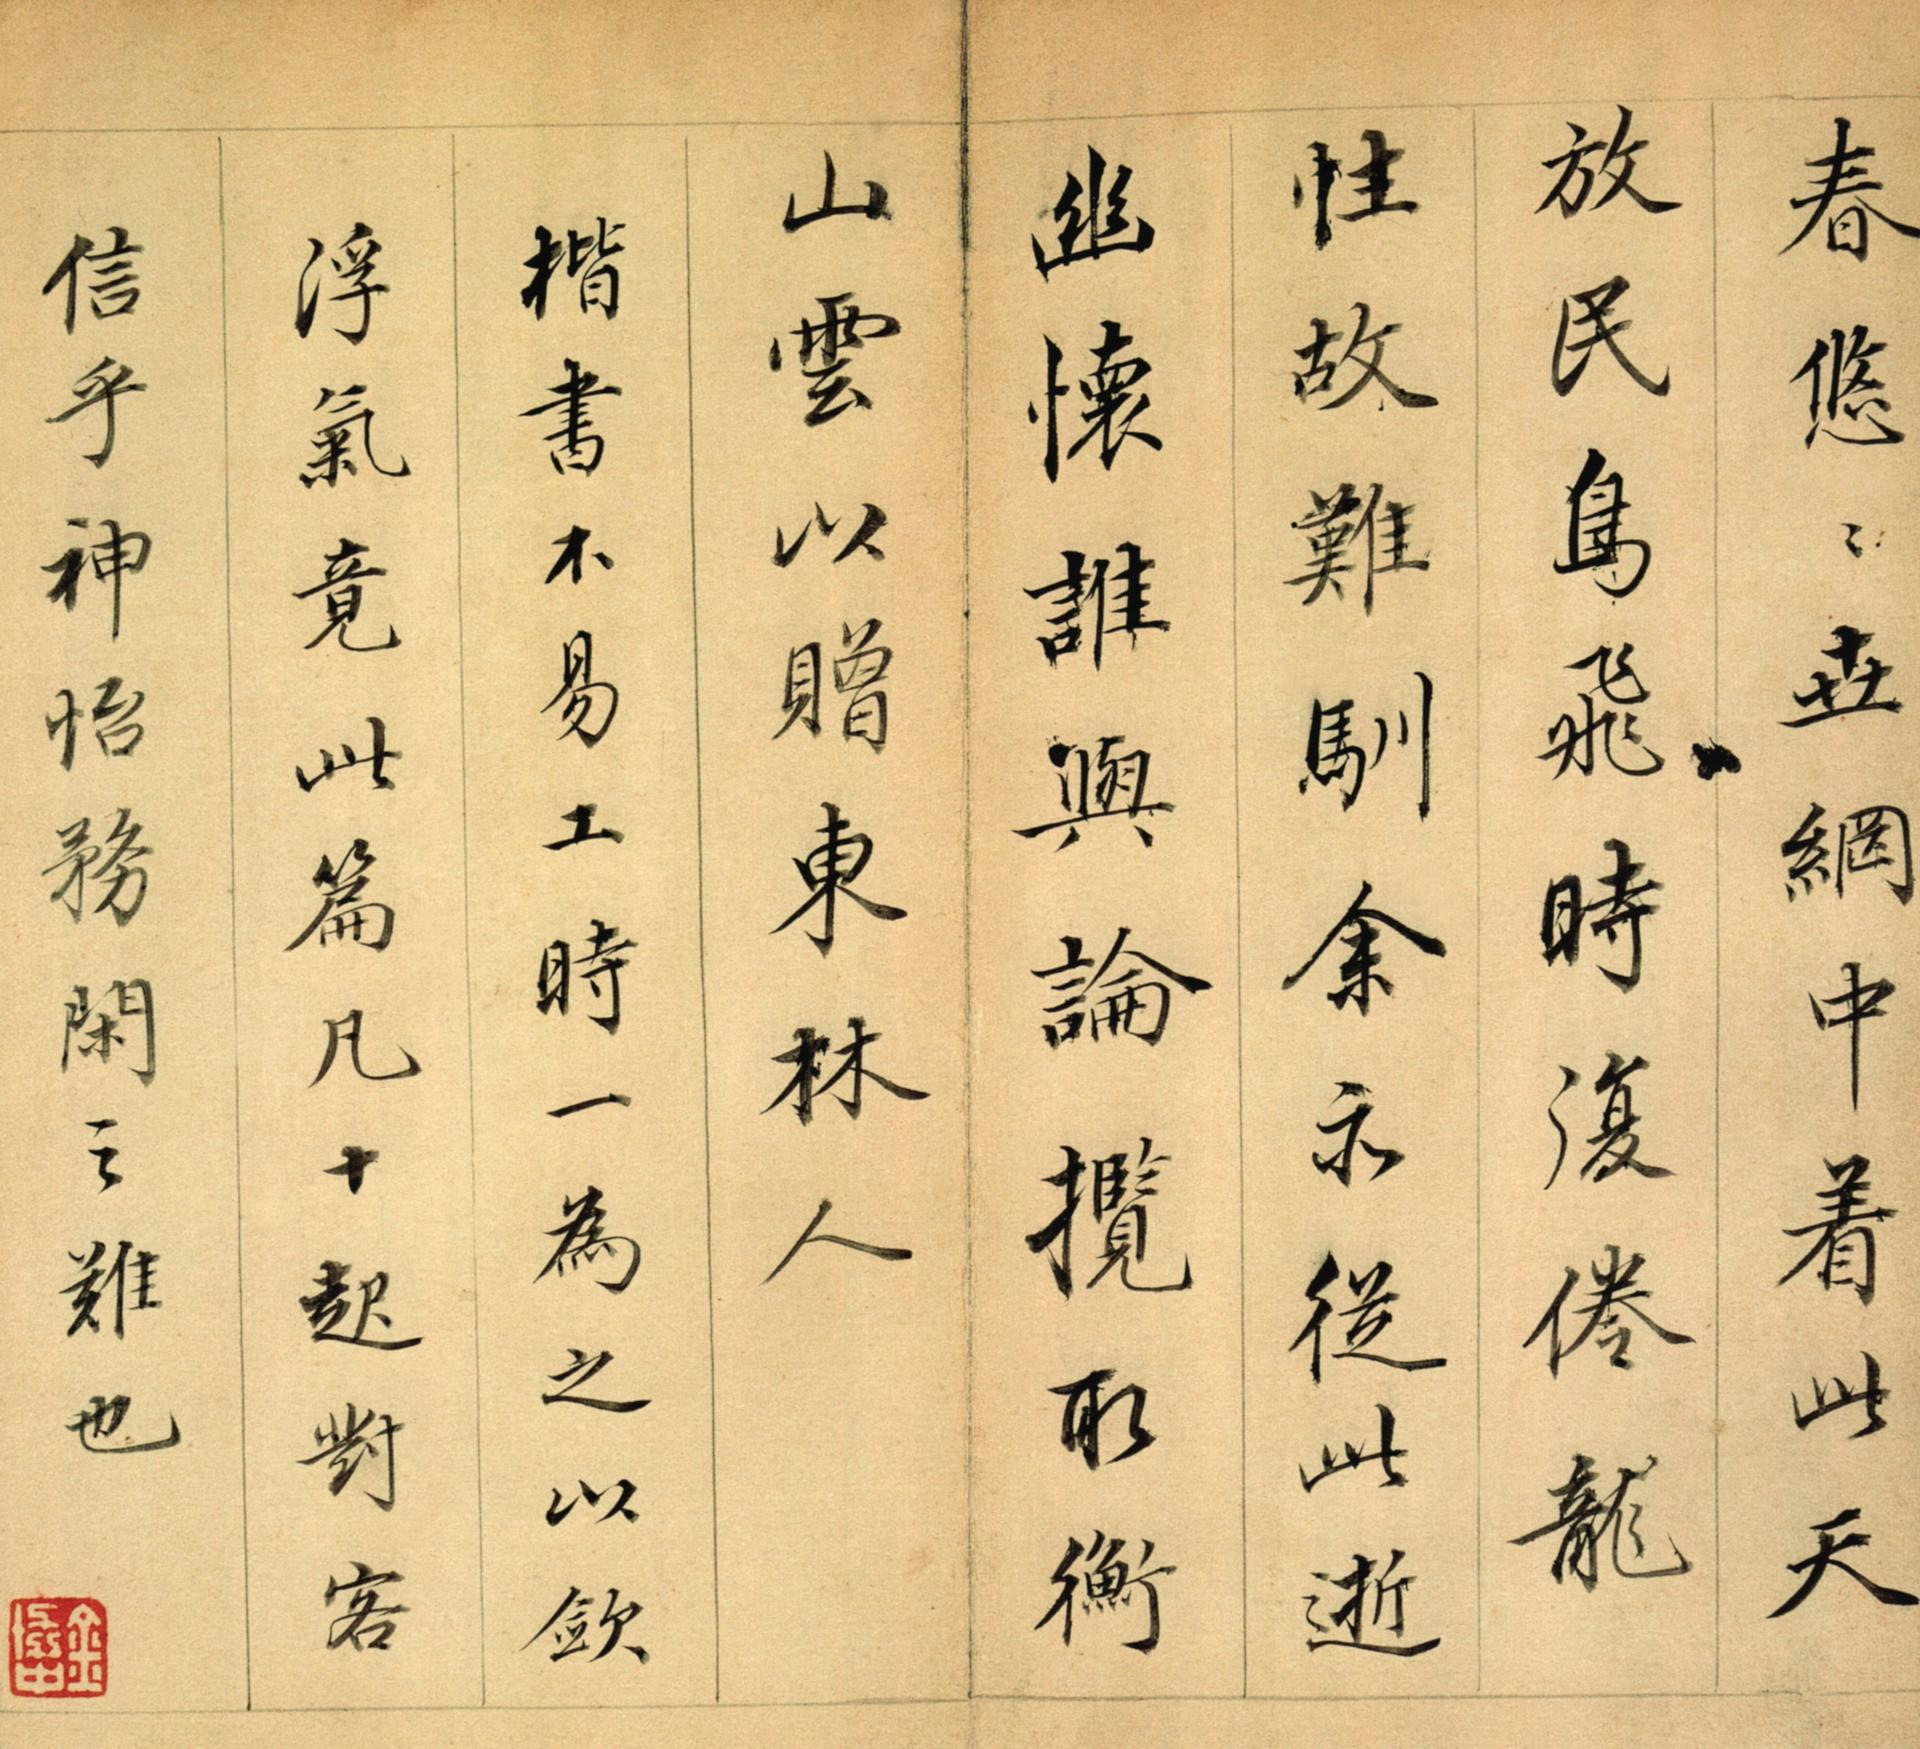 春悠〻世網中着此天
放民鳥飛時復倦龍
性故難馴余亦從此逝
幽懷誰與論攬取衡
山雲以贈東林人
楷書不易工時一為之以斂
浮氣竟此篇凡十起對客
信乎神怡務閑之難也